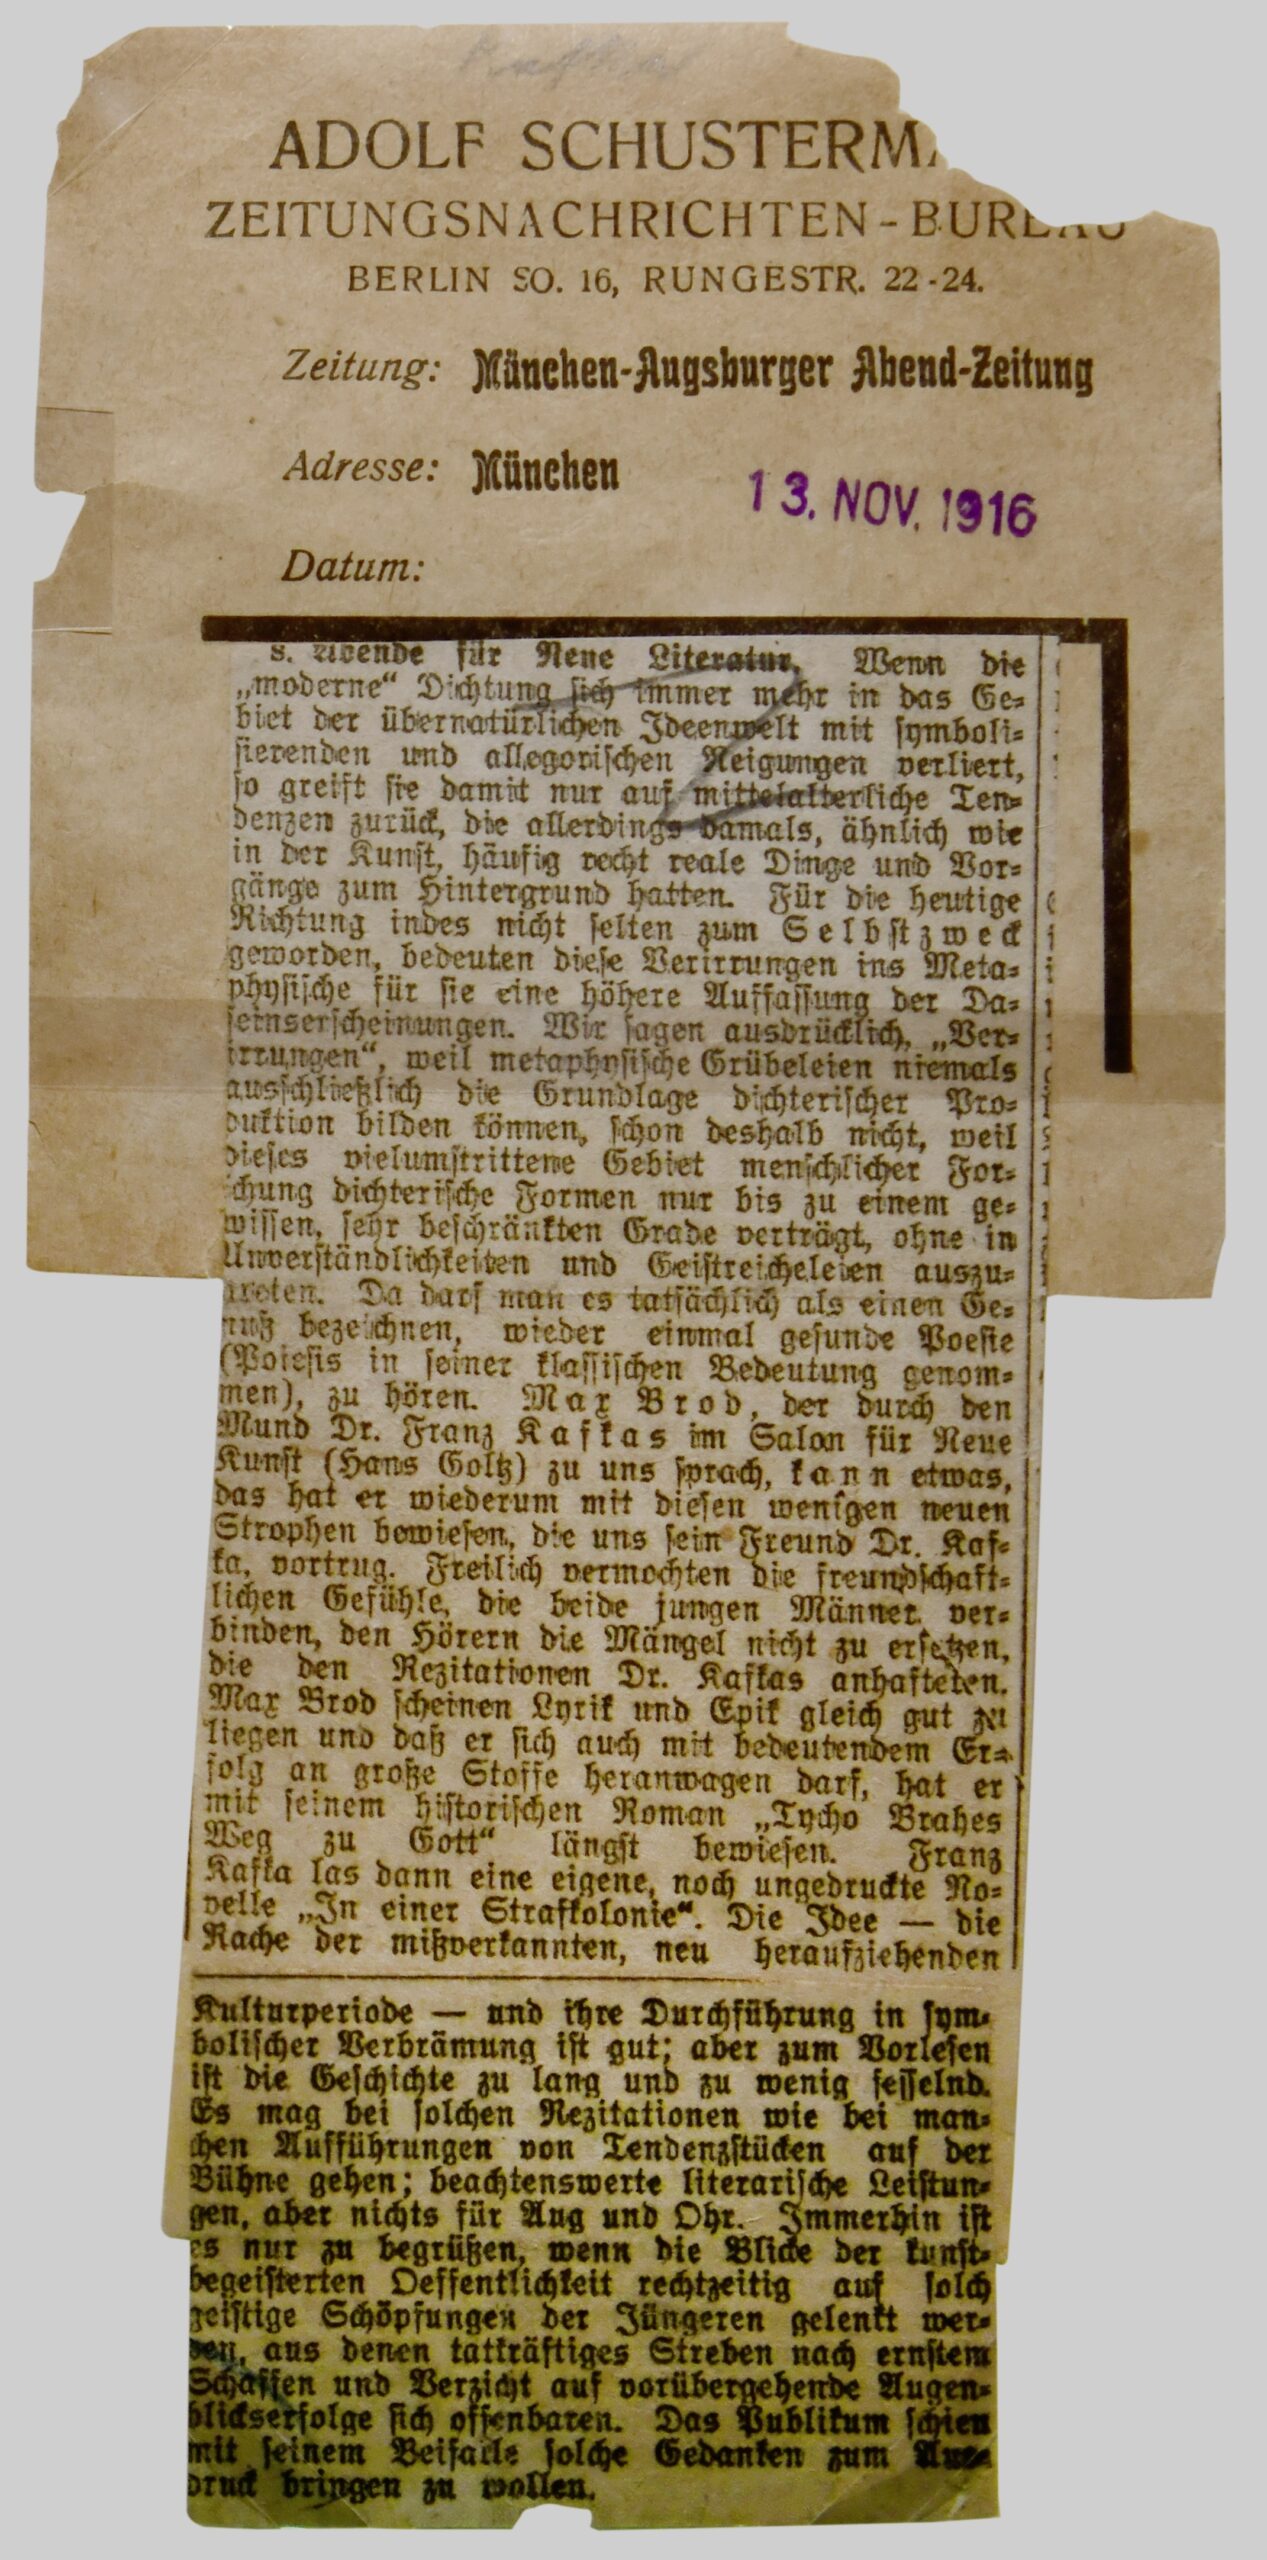 ADOLF SCHUSTERM
ZEITUNGSNACHRICHTEN-BUREAU
BERLIN SO. 16, RUNGESTR. 22-24.
Zeitung: München-Augsburger Abend-Zeitung
Adresse: München
13. NOV. 1916
Datum:
s. Abende für Neue Literatur. Wenn die
„moderne“ Dichtung sich immer mehr in das Ge-
biet der übernatürlichen Ideenwelt mit symboli-
sierenden und allegorischen Neigungen verliert,
so greift sie damit nur auf mittelalterliche Ten-
denzen zurück, die allerdings damals, ähnlich wie
in der Kunst, häufig recht reale Dinge und Vor-
gänge zum Hintergrund hatten. Für die heutige
Richtung indes nicht selten zum Selbstzweck
geworden, bedeuten diese Verirrungen ins Meta-
physische für sie eine höhere Auffassung der Da-
seinserscheinungen. Wir sagen ausdrücklich, „Ver-
irrungen“, weil metaphysische Grübeleien niemals
ausschließlich die Grundlage dichterischer Pro-
duktion bilden können, schon deshalb nicht, weil
dieses vielumstrittene Gebiet menschlicher For-
schung dichterische Formen nur bis zu einem ge-
wissen, sehr beschränkten Grade verträgt, ohne in
Unverständlichkeiten und Geistreicheleien auszu-
arten. Da darf man es tatsächlich als einen Ge-
nuß bezeichnen, wieder einmal gesunde Poesie
(Poiesis in seiner klassischen Bedeutung genom-
men), zu hören. Max Brod, der durch den
Mund Dr. Franz Kafkas im Salon für Neue
Kunst (Hans Goltz) zu uns sprach, kann etwas,
das hat er wiederum mit diesen wenigen neuen
Strophen bewiesen, die uns sein Freund Dr. Kaf-
ka, vortrug. Freilich vermochten die freundschaft-
lichen Gefühle, die beide jungen Männer ver-
binden, den Hörern die Mängel nicht zu ersetzen,
die den Rezitationen Dr. Kafkas anhafteten.
Max Brod scheinen Lyrik und Epik gleich gut zu
liegen und daß er sich auch mit bedeutendem Er-
folg an große Stoffe heranwagen darf, hat er
mit seinem historischen Roman „Tycho Brahes
Weg zu Gott“ längst bewiesen. Franz
Kafka las dann eine eigene, noch ungedruckte No-
velle „In einer Strafkolonie“. Die Idee — die
Rache der mißverkannten, neu heraufziehenden
Kulturperiode — und ihre Durchführung in sym-
bolischer Verbrämung ist gut; aber zum Vorlesen
ist die Geschichte zu lang und zu wenig fesselnd.
Es mag bei solchen Rezitationen wie bei man-
chen Aufführungen von Tendenzstücken auf der
Bühne gehen; beachtenswerte literarische Leistun-
gen, aber nichts für Aug und Ohr. Immerhin ist
es nur zu begrüßen, wenn die Blicke der kunst-
begeisterten Oeffentlichkeit rechtzeitig auf solch
geistige Schöpfungen der Jüngeren gelenkt wer-
den, aus denen tatkräftiges Streben nach ernstem
Schaffen und Verzicht auf vorübergehende Augen-
blickserfolge sich offenbaren. Das Publikum schien
mit seinem Beifalle solche Gedanken zum Aus-
druck bringen zu wollen.